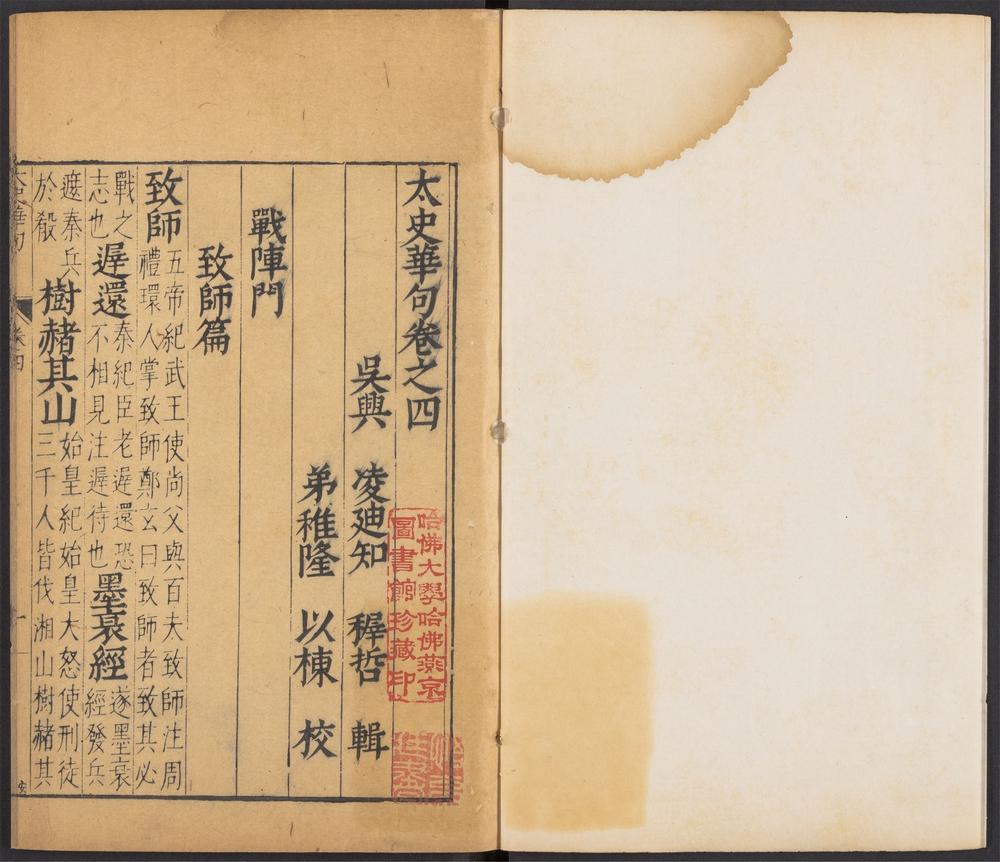 太史華句卷之四
吳興 凌迪知 穉哲 輯
弟稚隆 以棟 校
戰陣門
致師篇
致師 五帝紀武王使尚父與百夫致師注周
禮環人掌致師鄭玄曰致師者致其必
戰之
志也 遲還 秦紀臣老遲還恐
不相見注遲待也 墨衰絰 遂墨衰
絰發兵
遮秦兵
於殽 樹赭其山 始皇紀始皇大怒使刑徒
三千人皆伐湘山樹赭其
太史華句
卷四
一
哈佛大學哈佛燕京
圖書館珍藏印